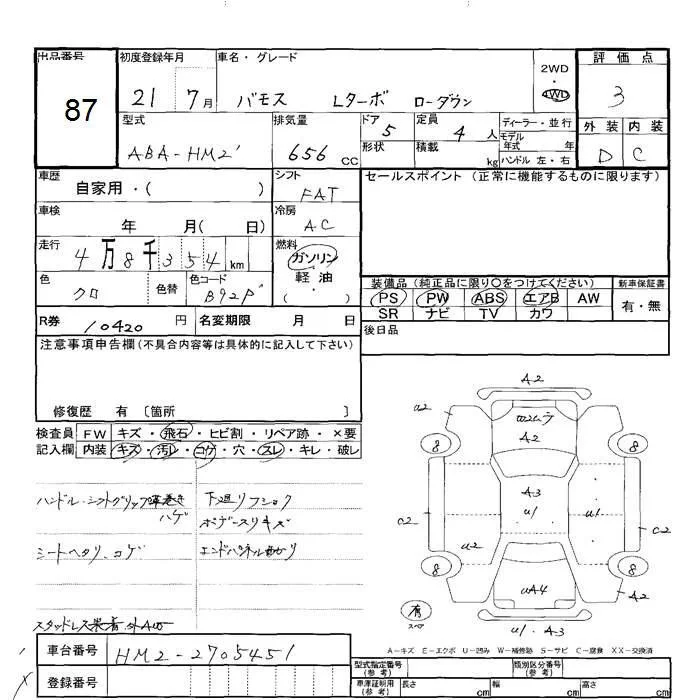 出品番号 初度登録年月 車名・グレード 2WD・4WD 評価点
87 21 7月 バモス Lターボ ローダウン 3
型式 排気量 ドア 定員 ディーラー・並行 外装 内装
ABA-HM2 656 CC 5 4人 モデル年式 年 D C
形状 積載 kg ハンドル 左・右
車歴 自家用・( ) シフト FAT セールスポイント (正常に機能するものに限ります)
車検 年 月( 日) 冷房 AC
走行 4万8千354 km 燃料 ガソリン 軽油 ( )
色 クロ 色替 色コード B92P
装備品 (純正品に限り○をつけてください) 新車保証書
PS PW ABS エアB AW 有・無
SR ナビ TV カワ
R券 10420 円 名変期限 月 日 後日品
注意事項申告欄(不具合内容等は具体的に記入して下さい)
修復歴 有 〔箇所 〕
検査員 FW キズ・飛石・ヒビ割・リペア跡・×要
記入欄 内装 キズ・汚レ・コゲ・穴・スレ・キレ・破レ
ハンドル・シフトグリップ革巻き 下廻リフショク
ハゲ ボデースリキズ
シートヘタリ、コゲ エンドパネル曲がり
A2
U2 A2
8 8
A3
U1 U1
C2 C2
U2
8 8
UA4 A2
有 スペア
U1 A3
A-キズ E-エクボ U-凹み W-補修跡 S-サビ C-腐食 XX-交換済
車台番号 HM2-2705451
登録番号
型式指定番号(参考) 類別区分番号(参考)
車庫証明用(参考) 長さ cm 幅 cm 高さ cm